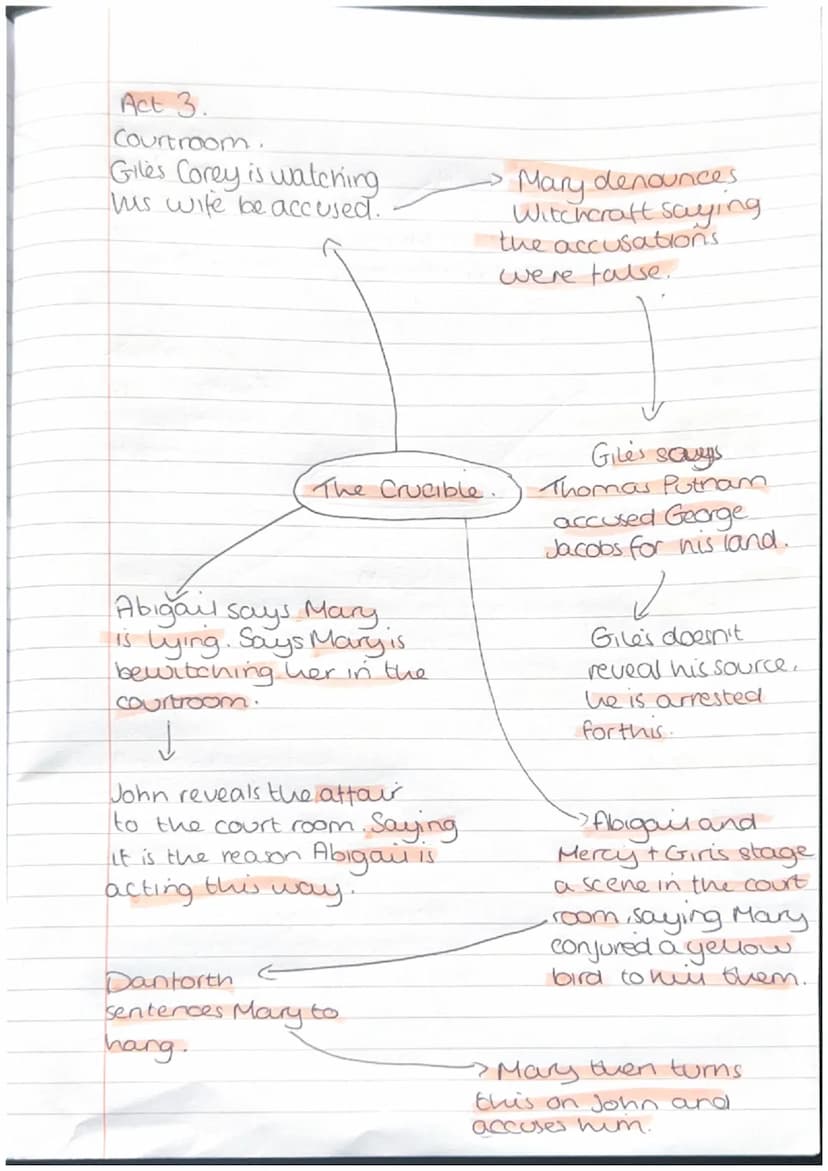 Act 3.
Courtroom.
Giles Corey is watching
his wife be accused.
Mary denounces
Witchcraft saying
the accusations
were false.
The Crucible.
Giles says
Thomas Putnam
accused George
Jacobs for his land.
Giles doesn't
reveal his source,
he is arrested
for this.
Abigail says Mary
is lying. Says Mary is
bewitching her in the
courtroom.
John reveals the affair
to the court room. Saying
it is the reason Abigail is
acting this way.
Abigail and
Mercy + Girls stage
a scene in the court
room, saying Mary
conjured a yellow
bird to kill them.
Danforth
sentences Mary to
hang.
Mary then turns
this on John and
accuses him.